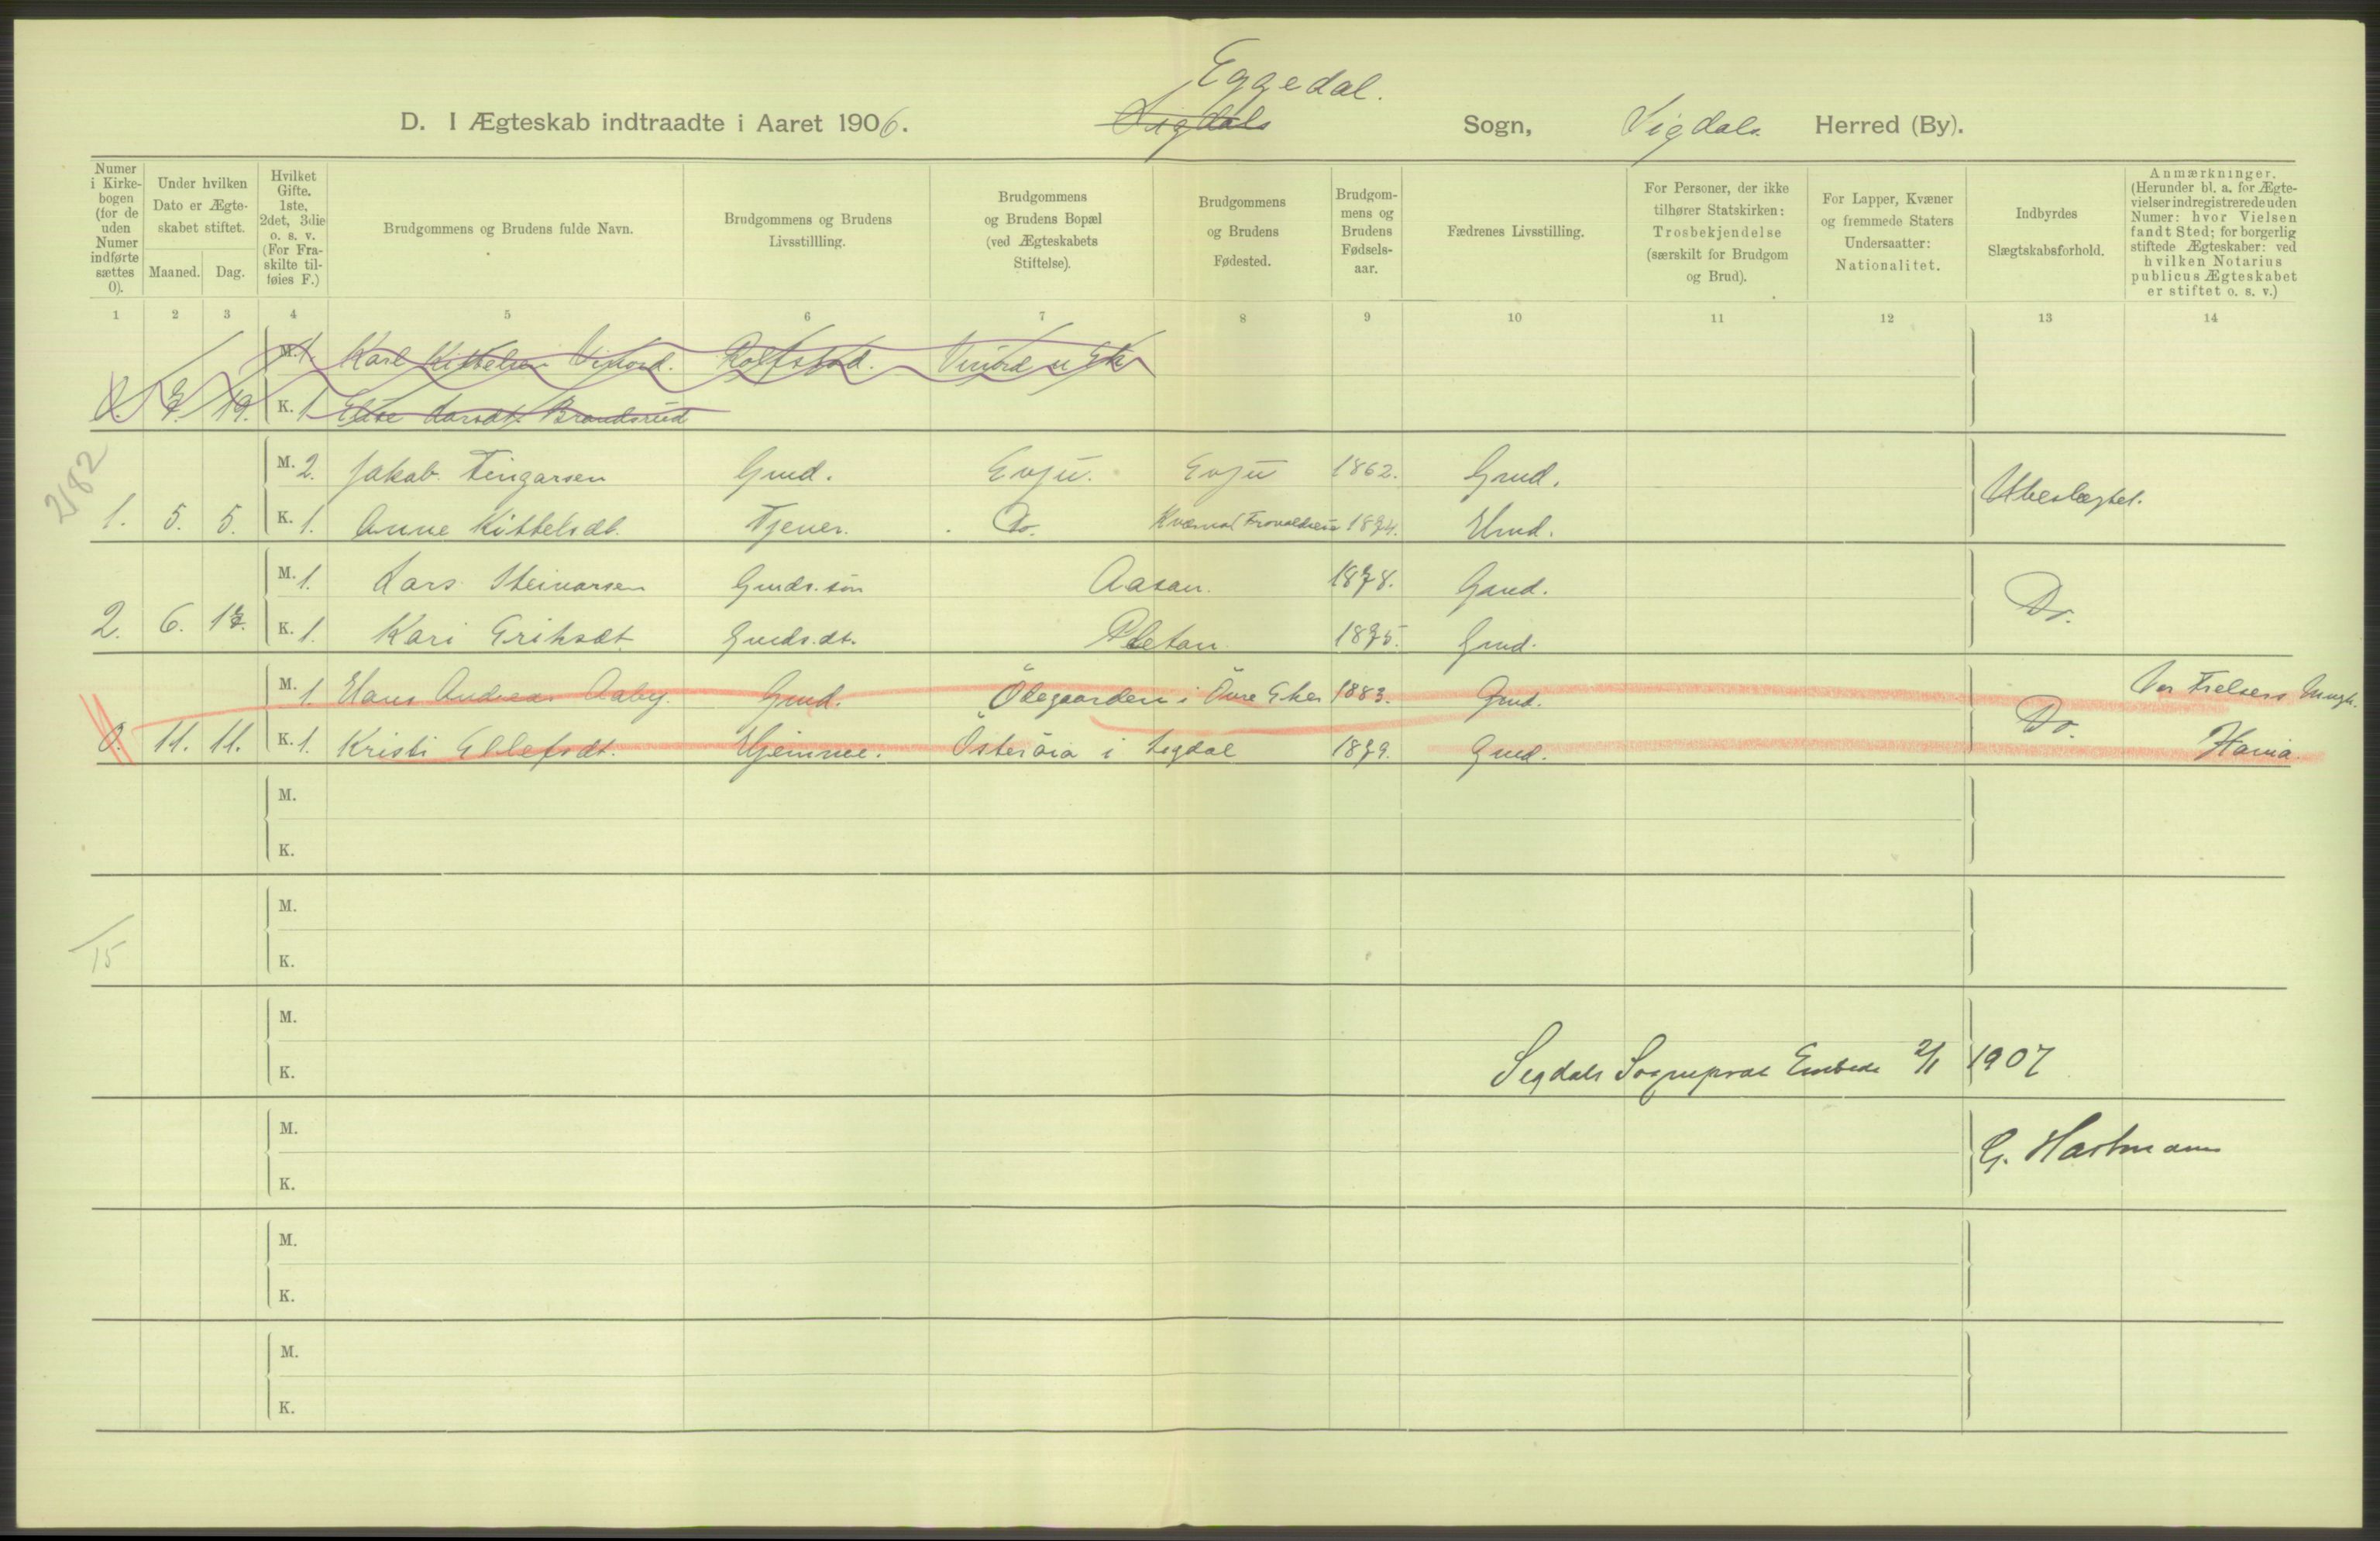 Eggedal.
D. I Ægteskab indtraadte i Aaret 1906. Sigdals Sogn, Sigdals Herred (By).
Numer i Kirke-bogen (for de uden Numer indførte sættes 0).
Under hvilken Dato er Ægte-skabet stiftet.
Maaned. Dag.
Hvilket Gifte. 1ste, 2det, 3die o. s. v. (For Fra-skilte til-føies F.)
Brudgommens og Brudens fulde Navn.
Brudgommens og Brudens Livsstillling.
Brudgommens og Brudens Bopæl (ved Ægteskabets Stiftelse).
Brudgommens og Brudens Fødested.
Brudgom-mens og Brudens Fødsels-aar.
Fædrenes Livsstilling.
For Personer, der ikke tilhører Statskirken: Trosbekjendelse (særskilt for Brudgom og Brud).
For Lapper, Kvæner og fremmede Staters Undersaatter: Nationalitet.
Indbyrdes Slægtskabsforhold.
Anmærkninger. (Herunder bl. a. for Ægte-vielser indregistrerede uden Numer: hvor Vielsen fandt Sted; for borgerlig stiftede Ægteskaber: ved hvilken Notarius publicus Ægteskabet er stiftet o. s. v.)
1 2 3 4 5 6 7 8 9 10 11 12 13 14
M. 1. Karl Kittelsen
0. 19. K. 1 Larsdt. Brandsrud
2182
M. 2. Jakob Gmd. Evju. Evju 1862. Gmd. Ubeslægtet.
1. 5. 5. K. 1. Anne Kittelsdt. Tjener. Do. 1874. Hmd.
M. 1. Lars Steinarsen Gmds. søn Aasan. 1878. Gaard. Do.
2. 6. 17. K. 1. Kari Eriksdt. Gmds. dt. Pletan 1875. Gmd.
M. 1. Hans Andreas Aaby. Gmd. Ödegaarden i Övre Eker 1883. Gmd. Do. Vor Frelsers
0. 11. 11. K. 1. Kristi Ellefsdt. Hjemme. i Sigdal 1879. Gmd.
M.
K.
M.
15
K.
M.
K. Sigdals Sogneprest Embede 2/1 1907
M. G. Hartmann
K.
M.
K.
M.
K.